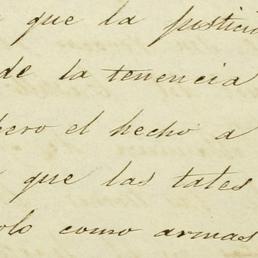 que la justicia
de la tenencia
pero el hecho a
que las tales
solo como armas